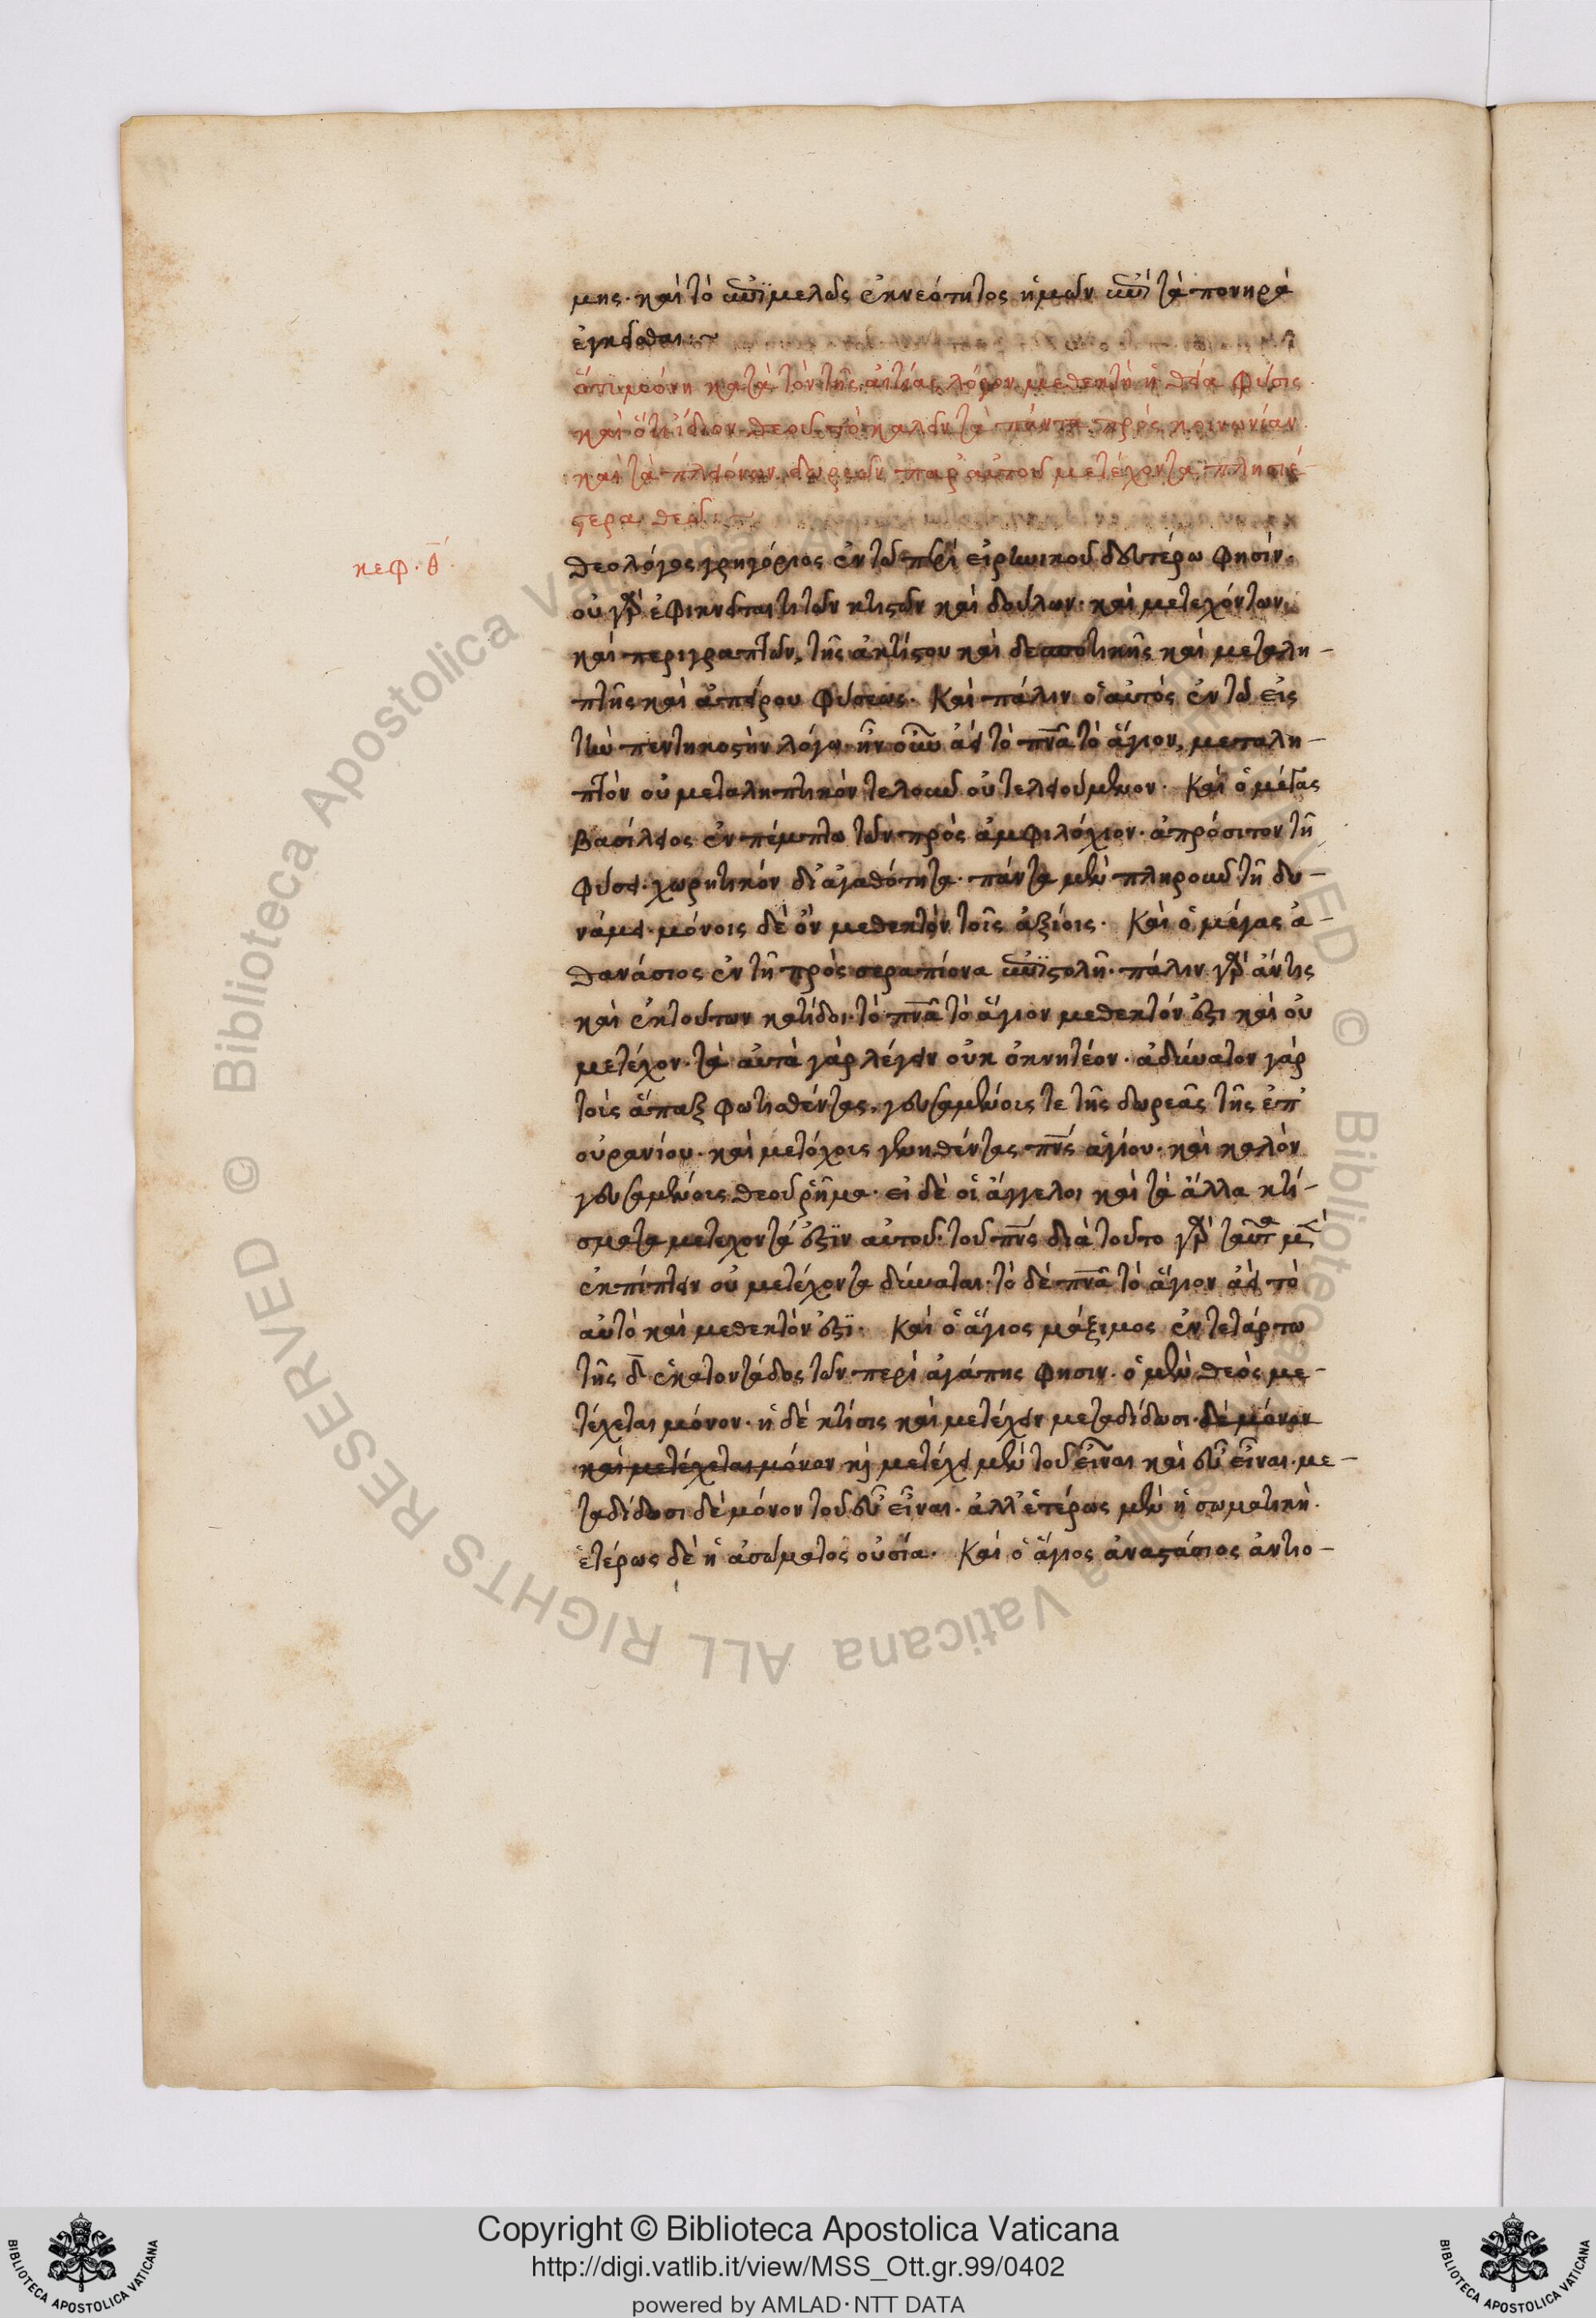 μης· καὶ τὸ ἐπιμελῶς ἐκ νεότητος ἡμῶν ἐπὶ τὰ πονηρὰ
ἐγκεῖσθαι:~
ὅτι μόνη κατὰ τὸν τῆς αἰτίας λόγον μεθεκτὴ ἡ θεία φύσις
καὶ ὅτι ἴδιον θεοῦ τὸ καλεῖν τὰ πάντα πρὸς κοινωνίαν·
καὶ τὰ πλειόνων δωρεῶν παρ' αὐτοῦ μετέχοντα πλησιέ
στερα θεοῦ:~
κεφ. θ̄.
θεολόγος γρηγόριος ἐν τῶ περὶ εἰρηνικοῦ δευτέρω φησίν·
οὐ γὰρ ἐφικνεῖται τι τῶν κτιστῶν καὶ δούλων· καὶ μετεχόντων
καὶ περιγραπτῶν, τῆς ἀκτίστου καὶ δεσποτικῆς καὶ μεταλη-
πτῆς καὶ ἀπείρου φύσεως. Καὶ πάλιν ὁ αὐτὸς ἐν τῶ εἰς
τὴν πεντηκοστὴν λόγω· ἦν οὖν ἀεὶ τὸ πν̅α τὸ ἅγιον, μεταλη-
πτὸν οὐ μεταληπτικὸν τελοῦν οὐ τελειούμενον. Καὶ ὁ μέγας
βασίλειος ἐν πέμπτω τῶν πρὸς ἀμφιλόχιον· ἀπρόσιτον τῆ
φύσει· χωρητικόν δι' ἀγαθότητα· πάντα μὲν πληροῦν τῆ δυ-
νάμει· μόνοις δὲ ὂν μεθεκτὸν τοῖς ἀξίοις. Καὶ ὁ μέγας ἀ-
θανάσιος ἐν τῆ πρὸς σεραπίονα ἐπιστολῆ· πάλιν γὰρ ἄν τις
καὶ ἐκ τούτων κατίδοι· τὸ πν̅α τὸ ἅγιον μεθεκτόν ἐστι καὶ οὐ
μετέχον· τὰ αὐτὰ γὰρ λέγειν οὐκ ὀκνητέον· ἀδύνατον γάρ
τοὶς ἅπαξ φωτισθέντας, γευσαμένοις τε τῆς δωρεᾶς τῆς ἐπ'
οὐρανίου· καὶ μετόχοις γενηθέντας πν̅ς ἁγίου· καὶ καλὸν
γευσαμένοις θεοῦ ῥῆμα· εἰ δὲ οἱ ἄγγελοι καὶ τὰ ἄλλα κτί-
σματα μετεχοντά ἐστιν αὐτοῦ· τοῦ πν̅ς διὰ τοῦτο γὰρ ταῦτα
ἐκπίπτειν οὐ μετέχοντα δύναται· τὸ δὲ πν̅α τὸ ἅγιον ἀεὶ τὸ
αὐτὸ καὶ μεθεκτὸν ἐστι. Καὶ ὁ ἅγιος μάξιμος ἐν τετάρτω
τῆς δ̅ ἑκατοντάδος τῶν περὶ ἀγάπης φησιν· ὁ μὲν θεὸς με-
τέχεται μόνον· ἡ δὲ κτίσις καὶ μετέχειν μεταδίδωσι· δὲ μόνον
καὶ μετέχεται μόνον κ̀ μετέχει μὲν τοῦ εἶναι καὶ εὖ εἶναι· με-
ταδίδωσι δὲ μόνον τοῦ εὖ εἶναι. ἀλλ' ἑτέρως μὲν ἡ σωματικὴ·
ἑτέρως δὲ ἡ ἀσώματος οὐσία. Καὶ ὁ ἅγιος ἀναστάσιος ἀντιο-
Copyright © Biblioteca Apostolica Vaticana
http://digi.vatlib.it/view/MSS_Ott.gr.99/0402
powered by AMLAD·NTT DATA